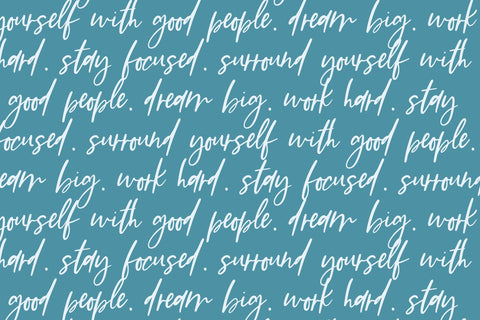 yourself with good people. dream big. work
hard. stay focused. surround yourself with
good people. dream big. work hard. stay
focused. surround yourself with good people.
dream big. work hard. stay focused. surround
yourself with good people. dream big. work
hard. stay focused. surround yourself with
good people. dream big. work hard. stay